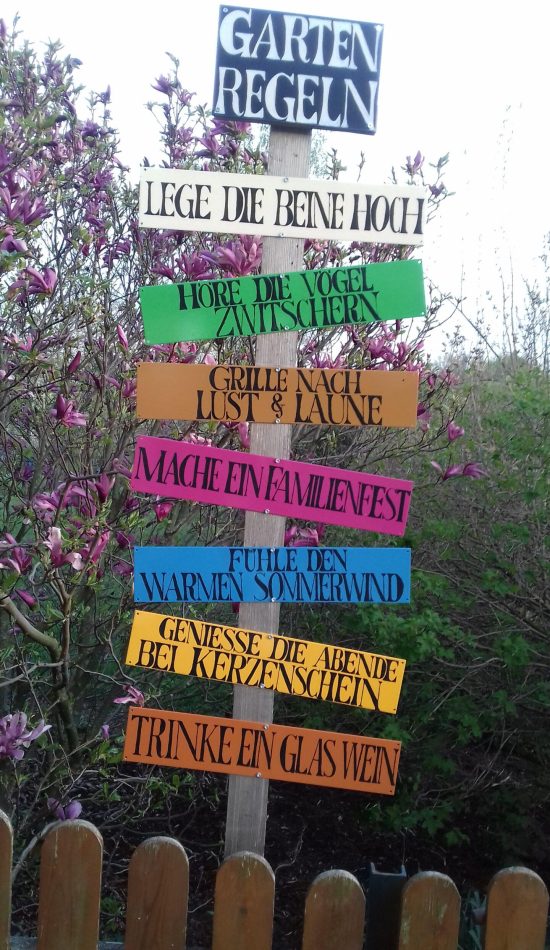 GARTEN
REGELN
LEGE DIE BEINE HOCH
HÖRE DIE VÖGEL
ZWITSCHERN
GRILLE NACH
LUST & LAUNE
MACHE EIN FAMILIENFEST
FÜHLE DEN
WARMEN SOMMERWIND
GENIESSE DIE ABENDE
BEI KERZENSCHEIN
TRINKE EIN GLAS WEIN